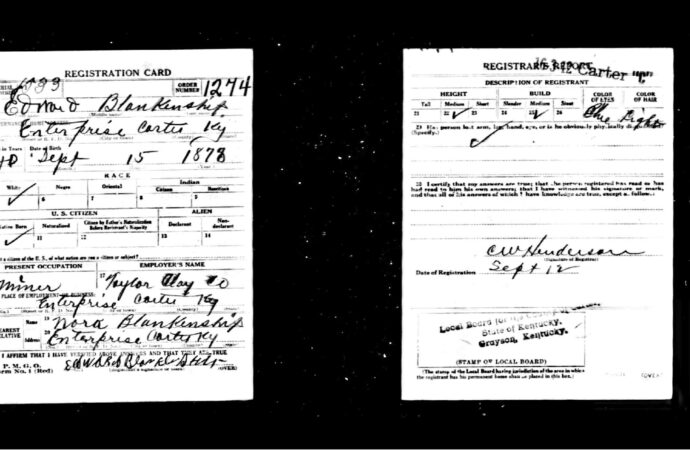 REGISTRATION CARD
ORDER NUMBER 1274
Edward Blankenship
Enterprise Carter Ky
in Years Date of Birth
Sept 15 1878
RACE
White Negro Oriental Indian
Citizen
6 7 8 9
U. S. CITIZEN ALIEN
Native Born Naturalized Citizen by Father's Naturalization Before Registrant's Majority Declarant Non-declarant
11 12 13 14
a citizen of the U. S., of what nation are you a citizen or subject?
PRESENT OCCUPATION EMPLOYER'S NAME
Miner 17 Taylor Clay Co
PLACE OF EMPLOYMENT OR BUSINESS:
Enterprise Carter Ky
NEAREST RELATIVE Name 19 Nora Blankenship
Address 20 Enterprise Carter Ky
I AFFIRM THAT I HAVE VERIFIED ABOVE ANSWERS AND THAT THEY ARE TRUE
P. M. G. O.
Form No. 1 (Red) (OVER)
REGISTRAR'S REPORT
Carter
DESCRIPTION OF REGISTRANT
HEIGHT BUILD COLOR OF EYES COLOR OF HAIR
Tall Medium Short Slender Medium Stout
21 22 23 24 25 26 Blue Light
29 Has person lost arm, leg, hand, eye, or is he obviously physically
(Specify.)
30 I certify that my answers are true; that the person registered has read or has
had read to him his own answers; that I have witnessed his signature or mark,
and that all of his answers of which I have knowledge are true, except as follows:
C W Henderson
(Signature of Registrar)
Date of Registration Sept 12
Local Board for the County of
State of Kentucky,
Grayson, Kentucky.
(STAMP OF LOCAL BOARD)
(The stamp of the Local Board having jurisdiction of the area in which
the registrant has his permanent home shall be placed in this box.)
(OVER)